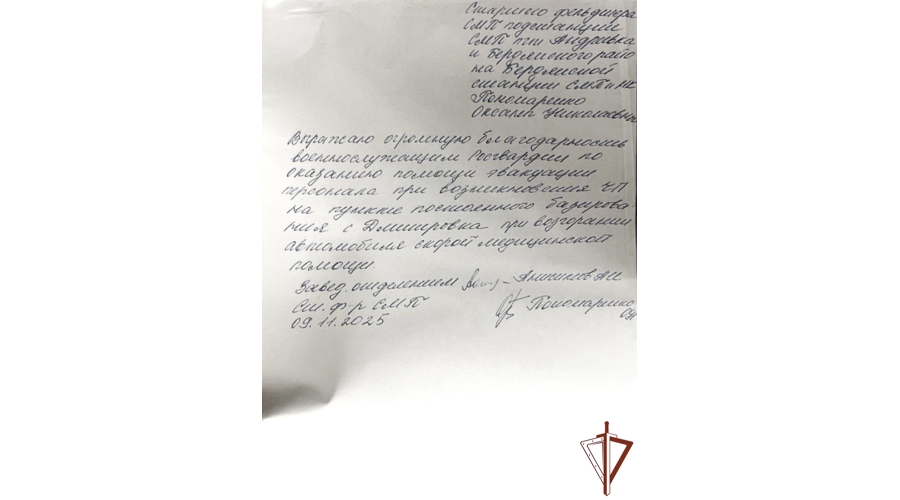 Старшего фельдшера
СМП подстанции
СМП пгт Андреевка
и Бердянского райо
на Бердянской
станции СМП и МК
Пономаренко
Оксаны Николаевны
Выражаю огромную благодарность
военнослужащим Росгвардии по
оказанию помощи эвакуации
персонала при возникновения ЧП
на пункте постоянного базирова-
ния с Дмитровка при возгорании
автомобиля скорой медицинской
помощи.
Завед. отделением Анисимов АИ
Ст. ф-р СМП Пономаренко
ОН
09.11.2025